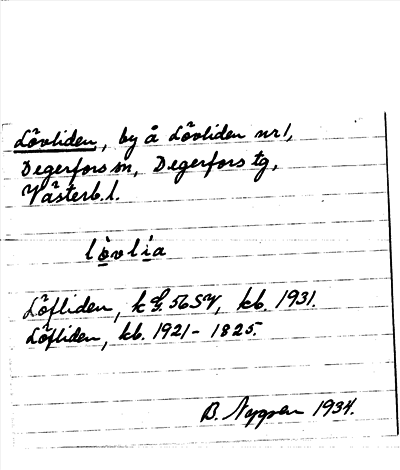 Lövliden, by å Lövliden nr 1,
Degerfors sn, Degerfors tg,
Västerb. l.
lövlia
Löfliden, k G. 56 SV, kb. 1931.
Löfliden, kb. 1921 - 1825.
B. Nygren 1934.